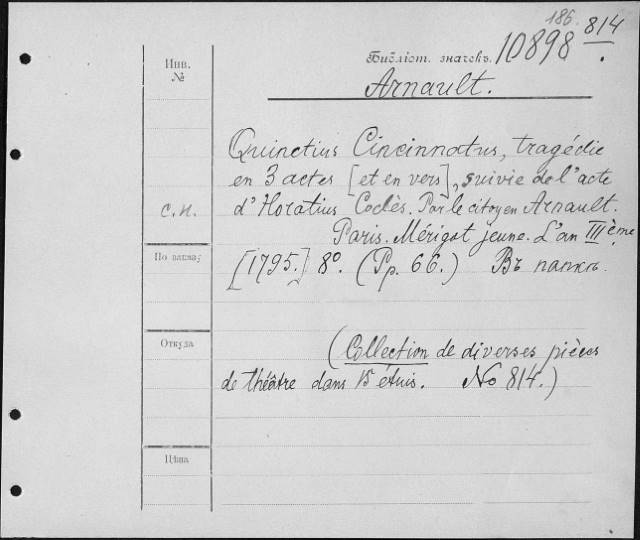 186.
Инв.
№
Библіот. значекъ.
10898 814
Arnault.
Quinctius Cincinnatus, tragédie
en 3 actes [et en vers], suivie de l'acte
С.П.
d'Horatius Coclès. Par le citoyen Arnault.
Paris. Mérigot jeune. L'an IIIème.
По заказу
[1795.] 8º. (Pp. 66.) Въ папкѣ.
Откуда
(Collection de diverses pièces
de théâtre dans 15 étuis. No 814.)
Цѣна